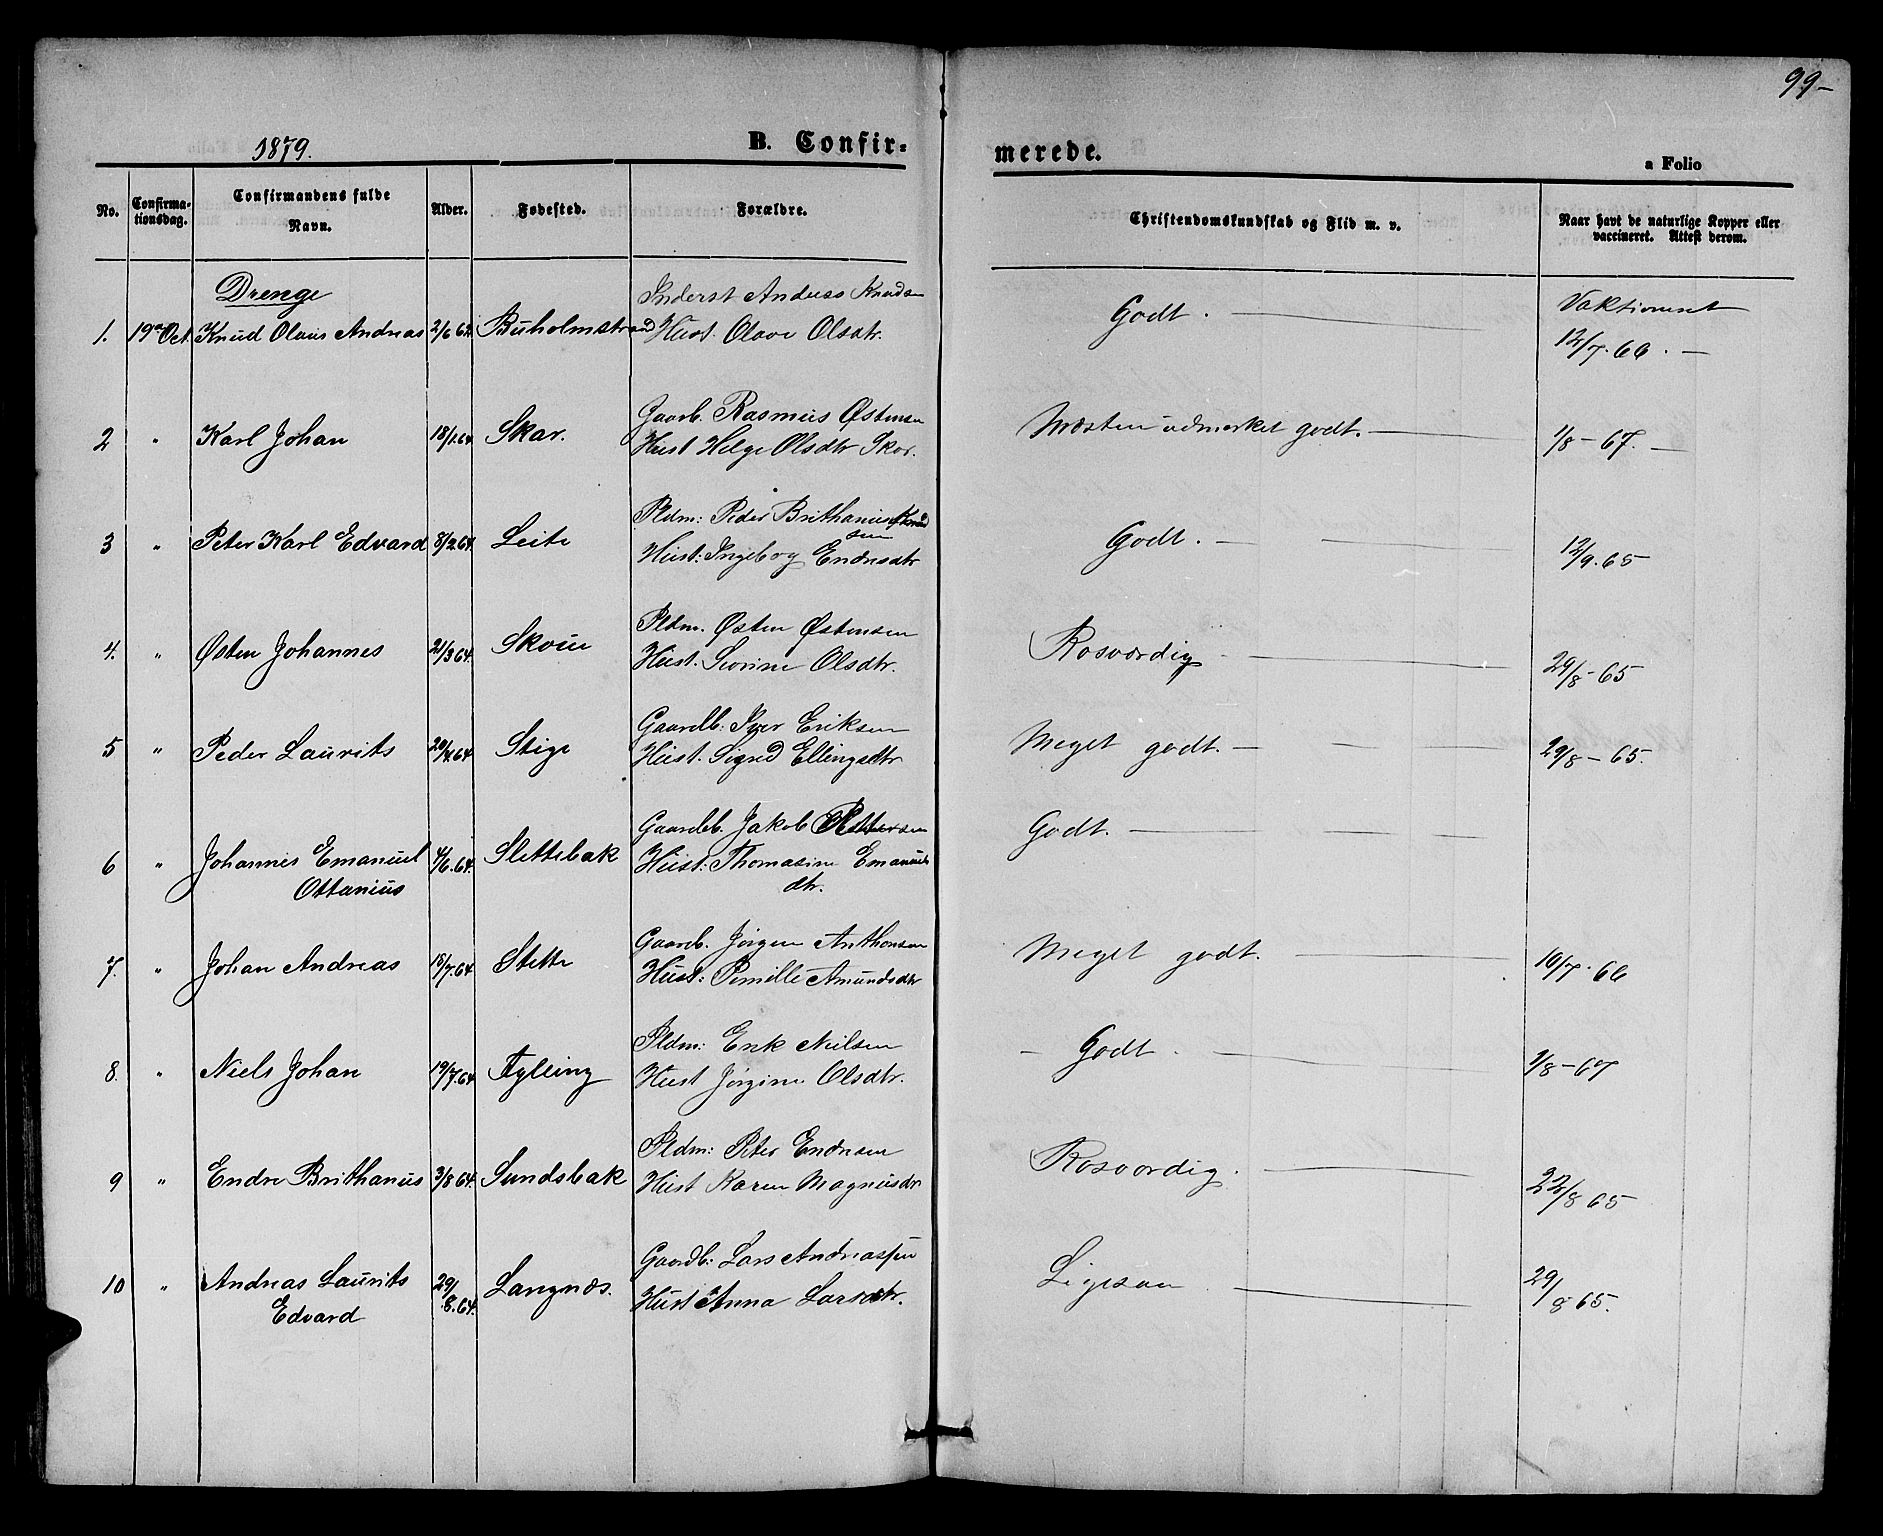 99-
1879.
B. Confir-
merede.
a Folio
No.
Confirma-
tionsdag.
Confirmandens fulde
Navn.
Alder.
Fødested.
Forældre.
Christendomskundskab og Flid m. v.
Naar havt de naturlige Kopper eller
vaccineret. Attest derom.
Drenge
Inderst Andreas Knuds
1. 19de Oct. Knud Olaus Andreas 2/6 62 Buholmstrand Hust. Olave Olsdtr. Godt. — Vaktioneret
12/7. 66. —
Gaardb. Rasmus Østensen
2 " Karl Johan 18/1.64 Skar. Hust Helge Olsdtr Skar. Næsten udmerket godt. — 1/8 - 67. —
Pldm: Peder Brithanius Knud
sen
3 " Peter Karl Edvard 8/2.64. Leite Hust: Ingeborg Endresdtr Godt. — 12/9.65
Pldm. Østen Østensen
4. " Østen Johannes 21/3 64. Skoue Hust. Sevrine Olsdtr. Rosværdig — 29/8 - 65
Gaardb: Iver Eriksen
5 " Peder Laurits 20/4.64 Stige Hust. Sigrid Ellingsdtr Meget godt. — 29/8 - 65.
Gaardb. Jakob Pettersen
6 " Johannes Emanuel 4/6.64. Slettebak Hust: Thomasine Emanuels Godt. —
Ottanius
dtr.
Gaardb. Jørgen Anthonsen
7. " Johan Andreas 15/7.64 Stette Hust: Pernille Amundsdtr Meget godt. — 10/7. 66
Pldm: Erik Nielsen
8. " Niels Johan 19/7.64 Fylling Hust Jørgine Olsdtr. - Godt. — 1/8 - 67
Pldm: Peter Endresen
9 " Endre Brithanius 3/8 64. Sundsbak Hust Karen Magnusdr Rosværdig. — 22/8 65
Gaardb: Lars Andreassen
10 " Andreas Laurits 29/8.64. Langnæs. Hust Anna Larsdtr. Ligesaa — 29/8 65.
Edvard